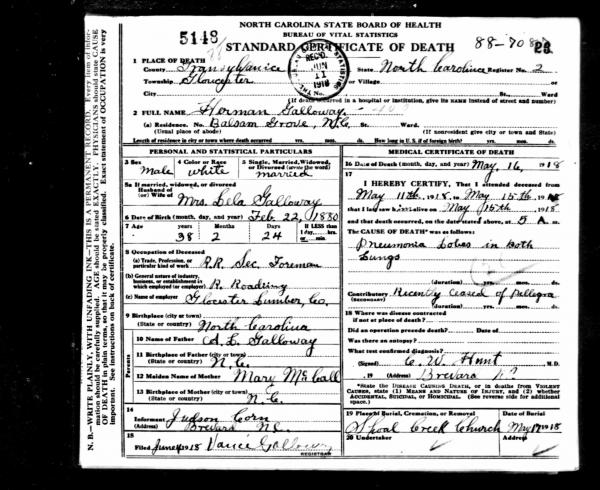 NORTH CAROLINA STATE BOARD OF HEALTH
BUREAU OF VITAL STATISTICS
5148
STANDARD CERTIFICATE OF DEATH
88-70
REC'D.
JUN
11
1918
1 PLACE OF DEATH
County Transylvania State North Carolina Register No. 2
Township Gloucester or Village or
City No. St., Ward
(If death occurred in a hospital or institution, give its NAME instead of street and number)
2 FULL NAME Herman Galloway
(a) Residence. No. Balsam Grove, N.C. St. Ward.
(Usual place of abode) (If nonresident give city or town and State)
Length of residence in city or town where death occurred yrs. mos. ds. How long in U.S. if of foreign birth? yrs. mos. ds.
PERSONAL AND STATISTICAL PARTICULARS
3 Sex
male
4 Color or Race
white
5 Single, Married, Widowed, or Divorced (write the word)
married
5a If married, widowed, or divorced
Husband of
(or) Wife of
Mrs. Dela Galloway
6 Date of Birth (month, day, and year) Feb 22, 1880
7 Age Years Months Days If LESS than
38 2 24 1 day, hrs.
or min.
8 Occupation of Deceased
(a) Trade, Profession, or particular kind of work R.R. Sec. Foreman
(b) General nature of industry, business, or establishment in which employed (or employer) R. Roading
(c) Name of employer Glocester Lumber Co.
9 Birthplace (city or town)
(State or country) North Carolina
Parents
10 Name of Father A. L. Galloway
11 Birthplace of Father (city or town)
(State or country) N.C.
12 Maiden Name of Mother Mary McCall
13 Birthplace of Mother (city or town)
(State or country) N.C.
14
Informant Judson Corn
(Address) Brevard N.C.
15
Filed June 1918 Vance Galloway
REGISTRAR
MEDICAL CERTIFICATE OF DEATH
16 Date of Death (month, day, and year) May, 16, 1918
17
I HEREBY CERTIFY, That I attended deceased from
May 11th, 1918, to May 15th, 1918
that I last saw him alive on May 15th, 1918
and that death occurred, on the date stated above, at 5 A m.
The CAUSE OF DEATH* was as follows:
Pneumonia Lobar in both
Lungs
(duration) yrs. mos. ds.
Contributory Recently ceased of Pellegra
(SECONDARY)
(duration) yrs. mos. ds.
18 Where was disease contracted
if not at place of death?
Did an operation precede death? Date of
Was there an autopsy?
What test confirmed diagnosis?
(Signed) C. W. Hunt M.D.
, 19 (Address) Brevard
*State the DISEASE CAUSING DEATH, or in deaths from VIOLENT CAUSES, state (1) MEANS AND NATURE OF INJURY, and (2) whether ACCIDENTAL, SUICIDAL, or HOMICIDAL. (See reverse side for additional space.)
19 Place of Burial, Cremation, or Removal Date of Burial
Shoal Creek Church May 17 1918
20 Undertaker Address
N. B.—WRITE PLAINLY, WITH UNFADING INK—THIS IS A PERMANENT RECORD. Every item of information should be carefully supplied. AGE should be stated EXACTLY. PHYSICIANS should state CAUSE OF DEATH in plain terms, so that it may be properly classified. Exact statement of OCCUPATION is very important. See instructions on back of certificate.